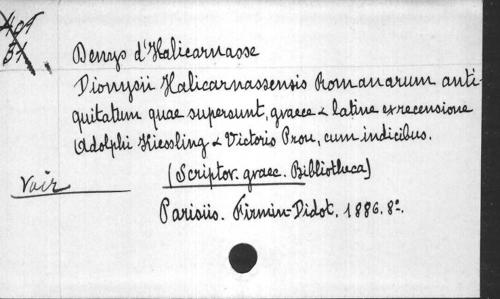 Denys d'Halicarnasse
Dionysii Halicarnassensis Romanarum anti-
quitatum quae supersunt, graece & latine ex recensione
Adolphi Kiessling & Victoris Prou, cum indicibus.
Voir (Scriptor. graec. Bibliotheca)
Parisiis. Firmin-Didot, 1886. 8º.